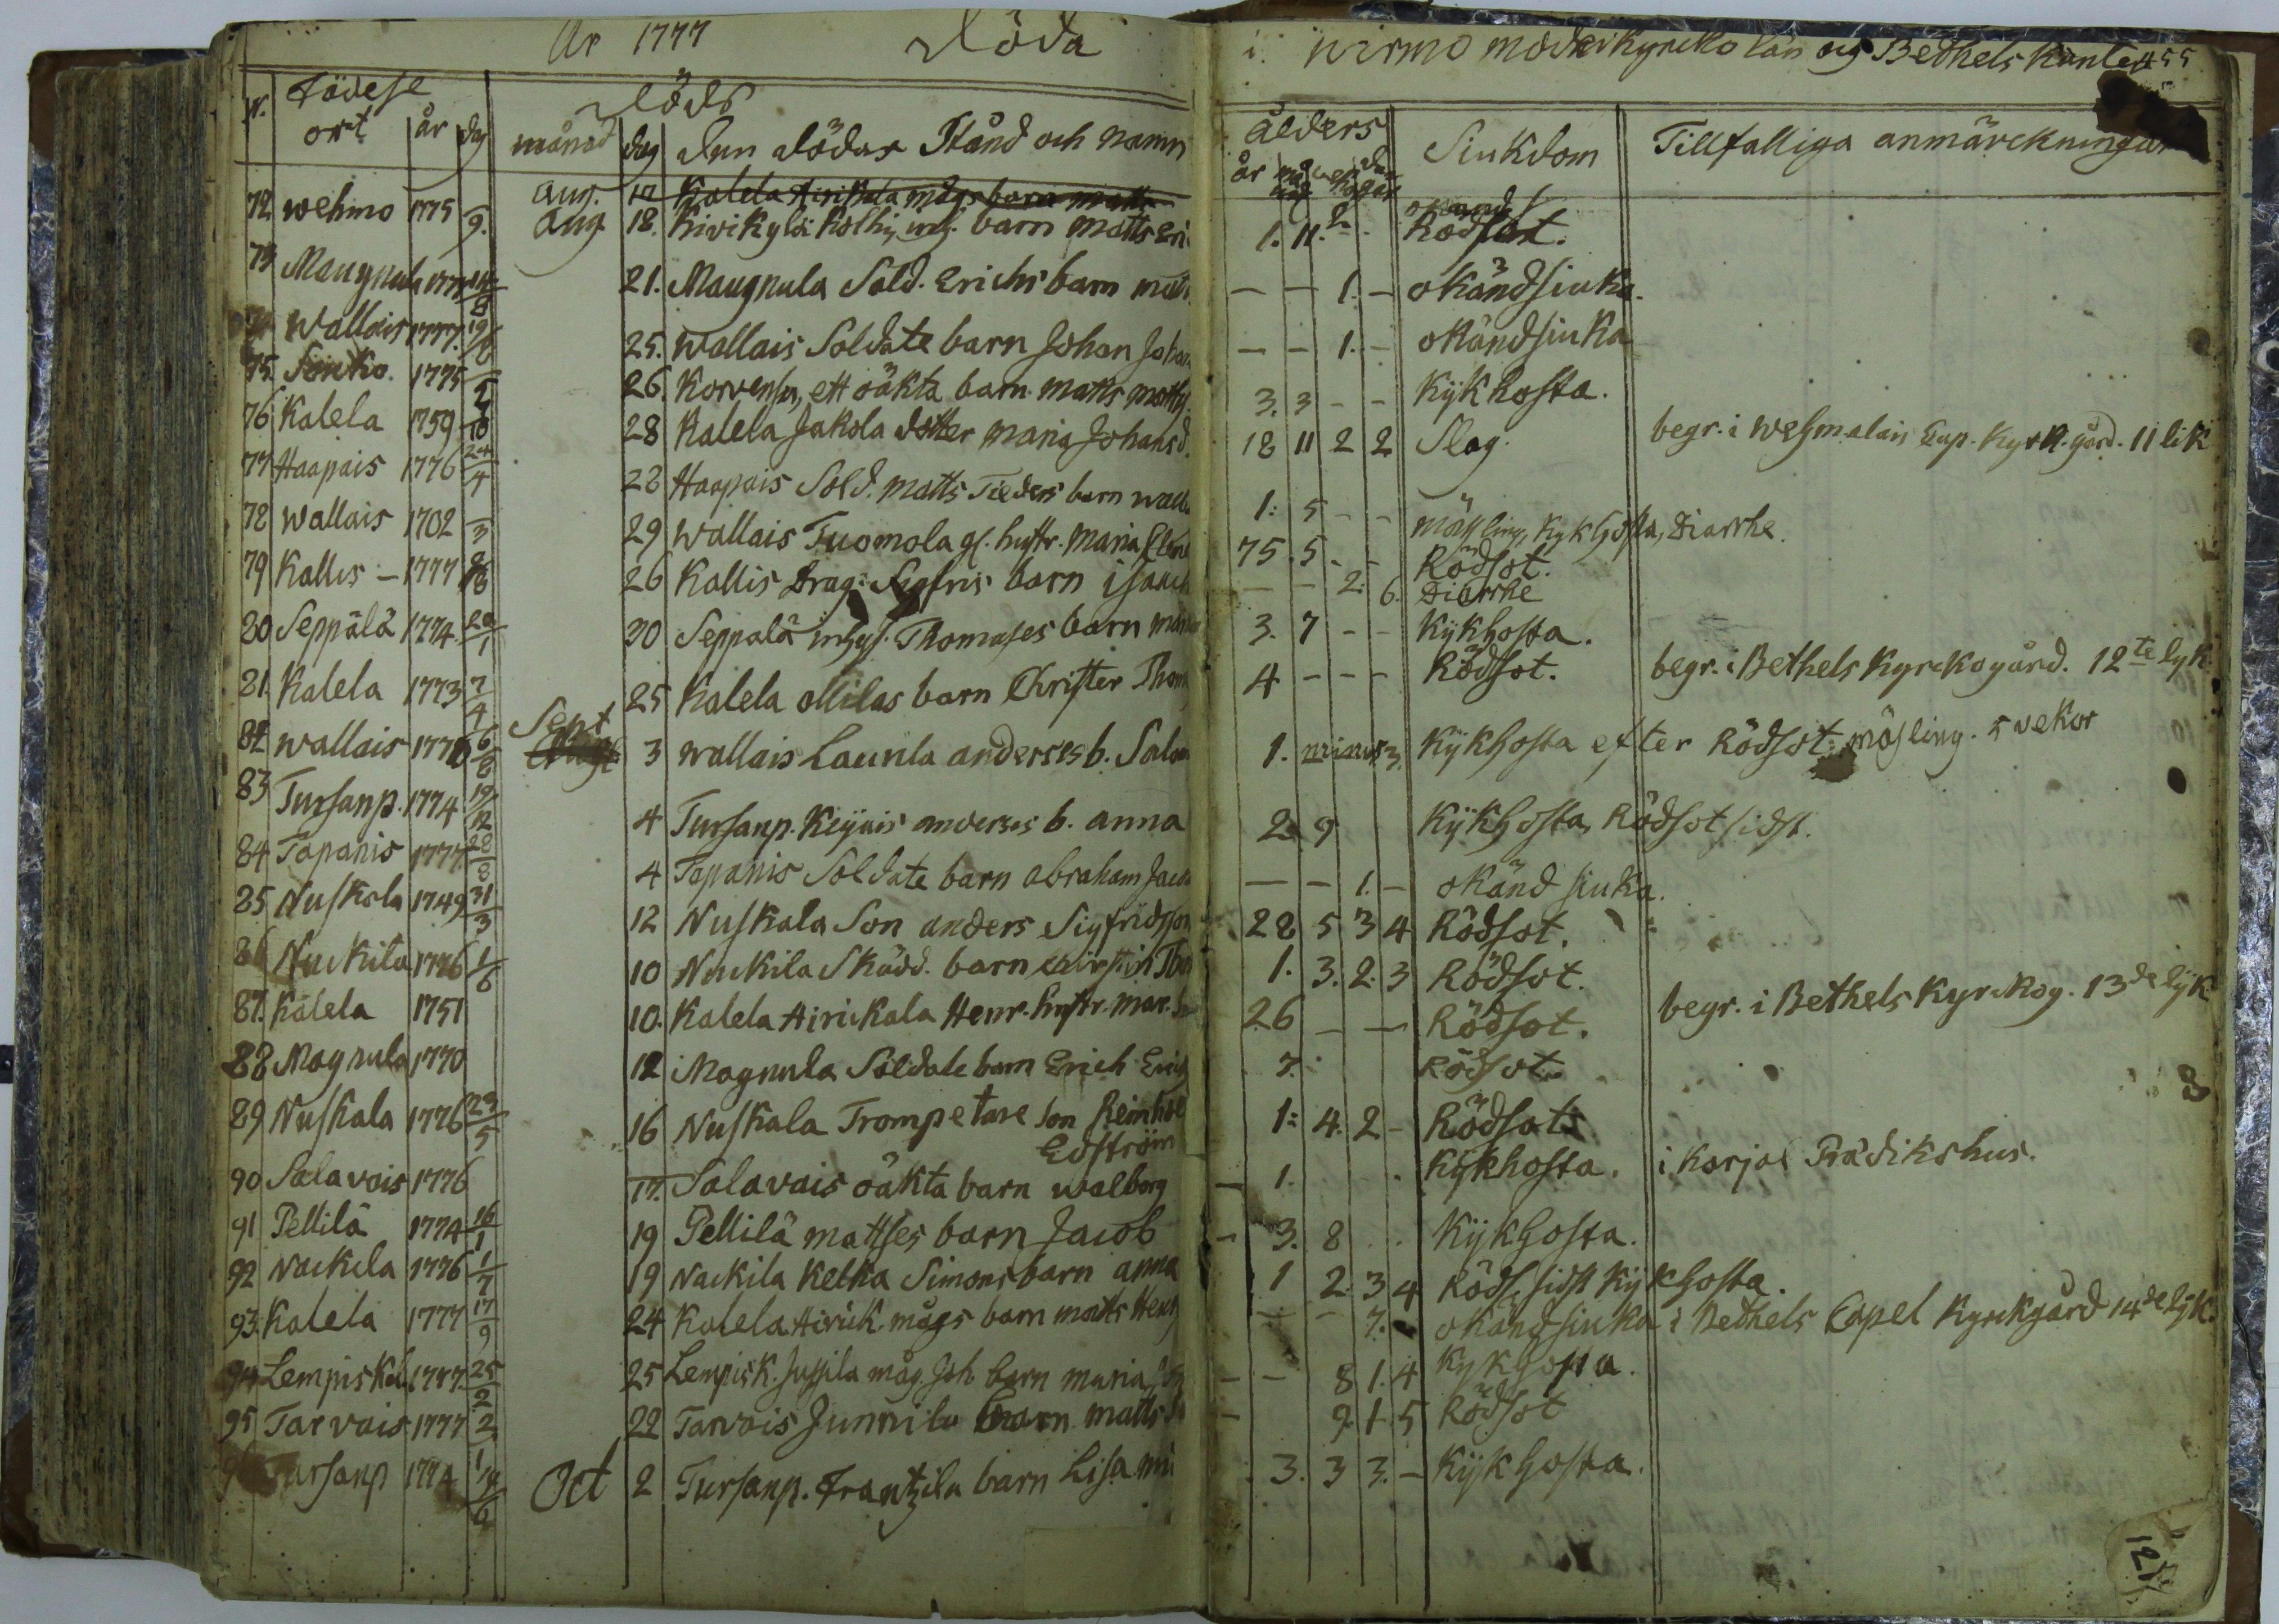 År 1777 Döda
N. Födese Död
ort år dag månad dag Den dödas Stånd och namn
Aug. 12 Kalela Airikala mågs barn matts
72 wehmo 1775 9. Aug 18. Kivikylä barn Matts Eri
73 Maugnula 1777 14/8 21. Maugnula Sold. Erichs barn matts
74 Wallais 1777. 19/8 25. Wallais Soldate barn Johan Johan
75. 1775 5 26. Korvensu, ett oäkta barn matts matts
76 Kalela 1759 9/10 28 Kalela Jakola dotter maria Johansd.
77 Haapais 1776 24/4 28 Haapais Sold. Matts Tieders barn walb
78 Wallais 1702 3 29 Wallais Tuomola gl. hustr. Maria
79 Kallis – 1777 8 26 Kallis Drag: Sigfris barn
80 Seppälä 1774. 20/1 30 Seppälä inhys. Thomases barn
81. Kalela 1773 7/4 25 Kalela ollilas barn Christer Thom
82 Wallais 1776 6/8 Sept 3 Wallais Launla anderses b. Salom
83 Tursanp. 1774 19/12 4 Tursanp. Keijuis anderses b. anna
84 Tapanis 1777. 28/8 4 Tapanis Soldate barn abraham Jacob
85 Nuskala 1749 31/3 12 Nuskala Son anders Sigfridsson
86 Nuckila 1776 1/6 10 Nuckila Skädd. barn
87. Kalela 1751 10. Kalela Airickala Henr. hustr. Mar.
88 Magnula 1770 12 Magnula Soldate barn Erich Erich
89 Nuskala 1776 23/5 16 Nuskala Trompetare son Reinhol
Edström
90 Salavais 1776 17. Salavais oäkta barn walborg
91 Pellilä 1774 16/1 19 Pellilä mattses barn Jacob
92 Nackila 1776 1/7 19 Nackila Kelka Simons barn anna
93. Kalela 1777 17/9 24 Kalela Airick. mågs barn matts Henr
94 Lempisk 25/2 25 Lempisk. Jussila måg. Joh. barn maria
95 Tarvais 1777 2 22 Tarvais Junnila barn matts
Tursanp 1774 14/6 Oct 2 Tursanp. Frantzila barn Lisa
i. wirmo moderkyrcko län og Bethels Kante 455
ålders Siukdom Tillfalliga anmärckningar
år
1. 11. 2 – Rödsot.
– – 1. – okänd siuka.
– – 1. – okänd siuka
3. 3 – – Kÿkhosta.
18 11 2 2 Slag. begr. i Wehmalais Cap. Kyrk. gård. 11 lik
1: 5 – – mässling, Kykhosta, Diarrhe.
75. 5 – – Rödsot.
– – 2. 6. Diarrhe
3. 7 – – Kÿkhosta.
4 – – – Rödsot. begr. i Bethels Kyrckogård. 12te lyk
1. minus 3. Kÿkhosta efter Rödsot mäsling. 5 wekor
2. 9 Kÿkhosta, Rödsot sidst.
– – 1. – okänd siuka.
28 5 3 4 Rödsot.
1. 3. 2. 3 Rödsot.
26 – – Rödsot. begr. i Bethels Kyrckog. 13de lÿk
7. Rödsot.
1: 4. 2 – Rödsot
– 1. Kÿkhosta. i Karjal Prädikshus.
– 3. 8 Kÿkhosta.
1 2. 3 4 Röds. sidst Kÿkhosta.
– – 7. okänd siuka i Bethels Capel Kyrckgård 14de lÿk.
– – 8 1. 4 Kykhosta.
– 9. 1. 5 Rödsot
3. 3 3. – Kÿkhosta.